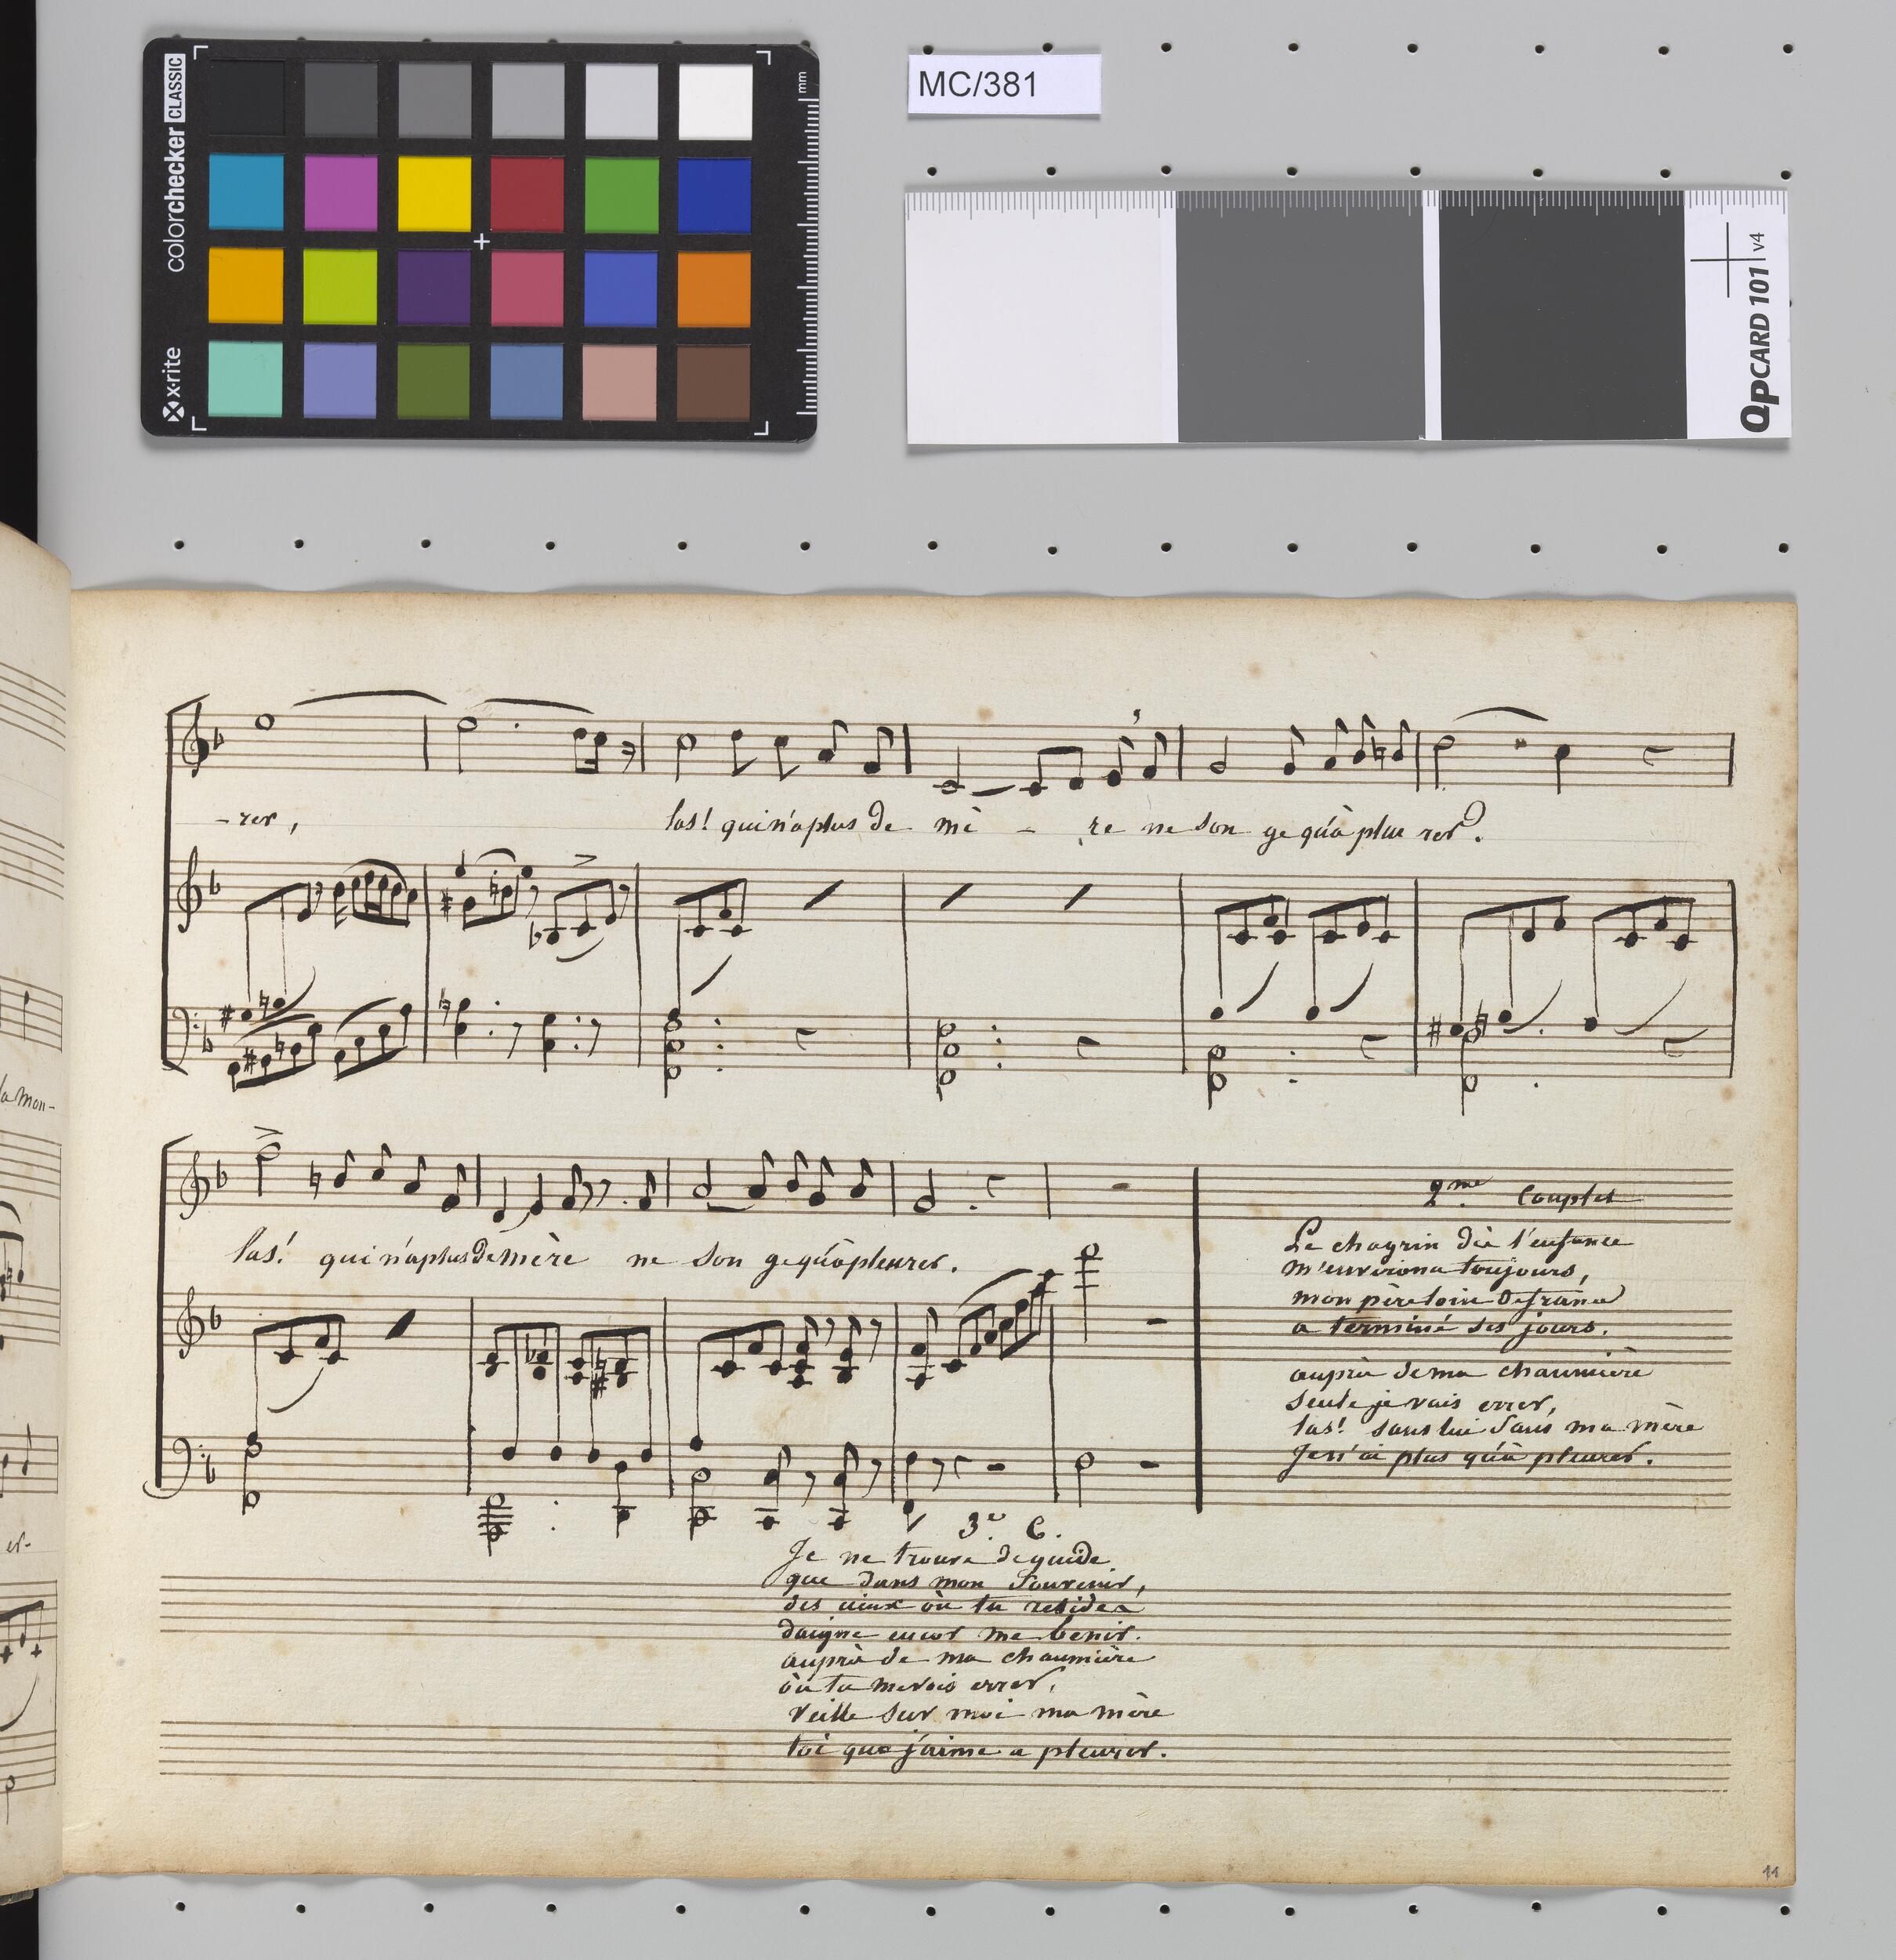 colorchecker CLASSIC
x-rite
mm
MC/381
QPCARD 101 v4
la mon-
er-
-rer,
las! qui n'a plus de mè - re ne son ge qu'à pleu rer?
las! qui n'a plus de mère ne son ge qu'à pleurer.
2me Couplet
Le chagrin dès l'enfance
m'environna toujours,
mon père loin de france
a terminé ses jours.
auprès de ma chaumière
seule je vais errer,
las! sans lui sans ma mère
Je n'ai plus qu'à pleurer.
3e C.
Je ne trouve de guide
que dans mon souvenir,
des cieux où tu resides
daigne encor me benir.
auprès de ma chaumière
où tu me vois errer,
veille sur moi ma mère
toi que j'aime a pleurer.
11